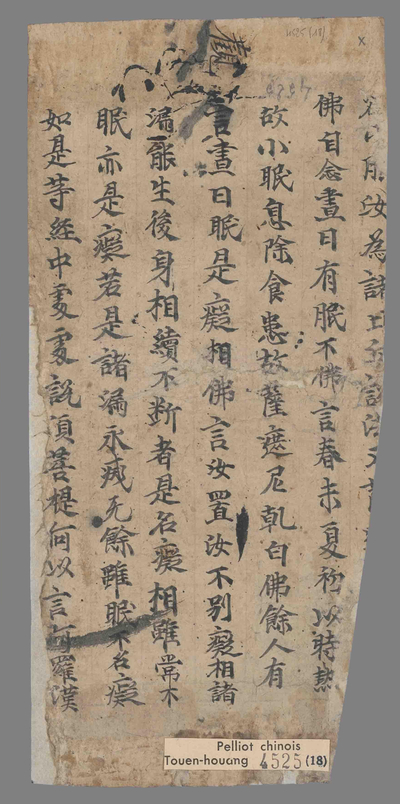 汝為諸
佛自念晝日有眠不佛言春末夏初以時熱
故小眠息除食患故薩遮尼乹白佛餘人有
言晝日眠是癡相佛言汝置汝不別癡相諸
漏能生後身相續不断者是名癡相雖常不
眠亦是癡若是諸漏永滅无餘雖眠不名癡
如是等經中處處說須菩提何以言阿羅漢
Pelliot chinois
Touen-houang 4525 (18)